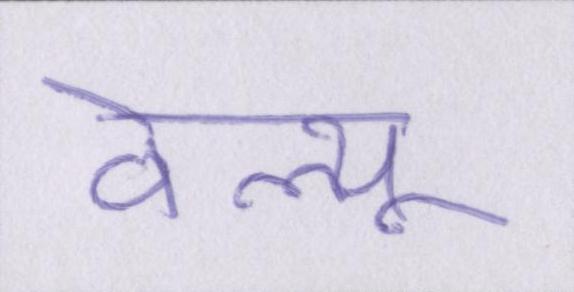 वेल्यू